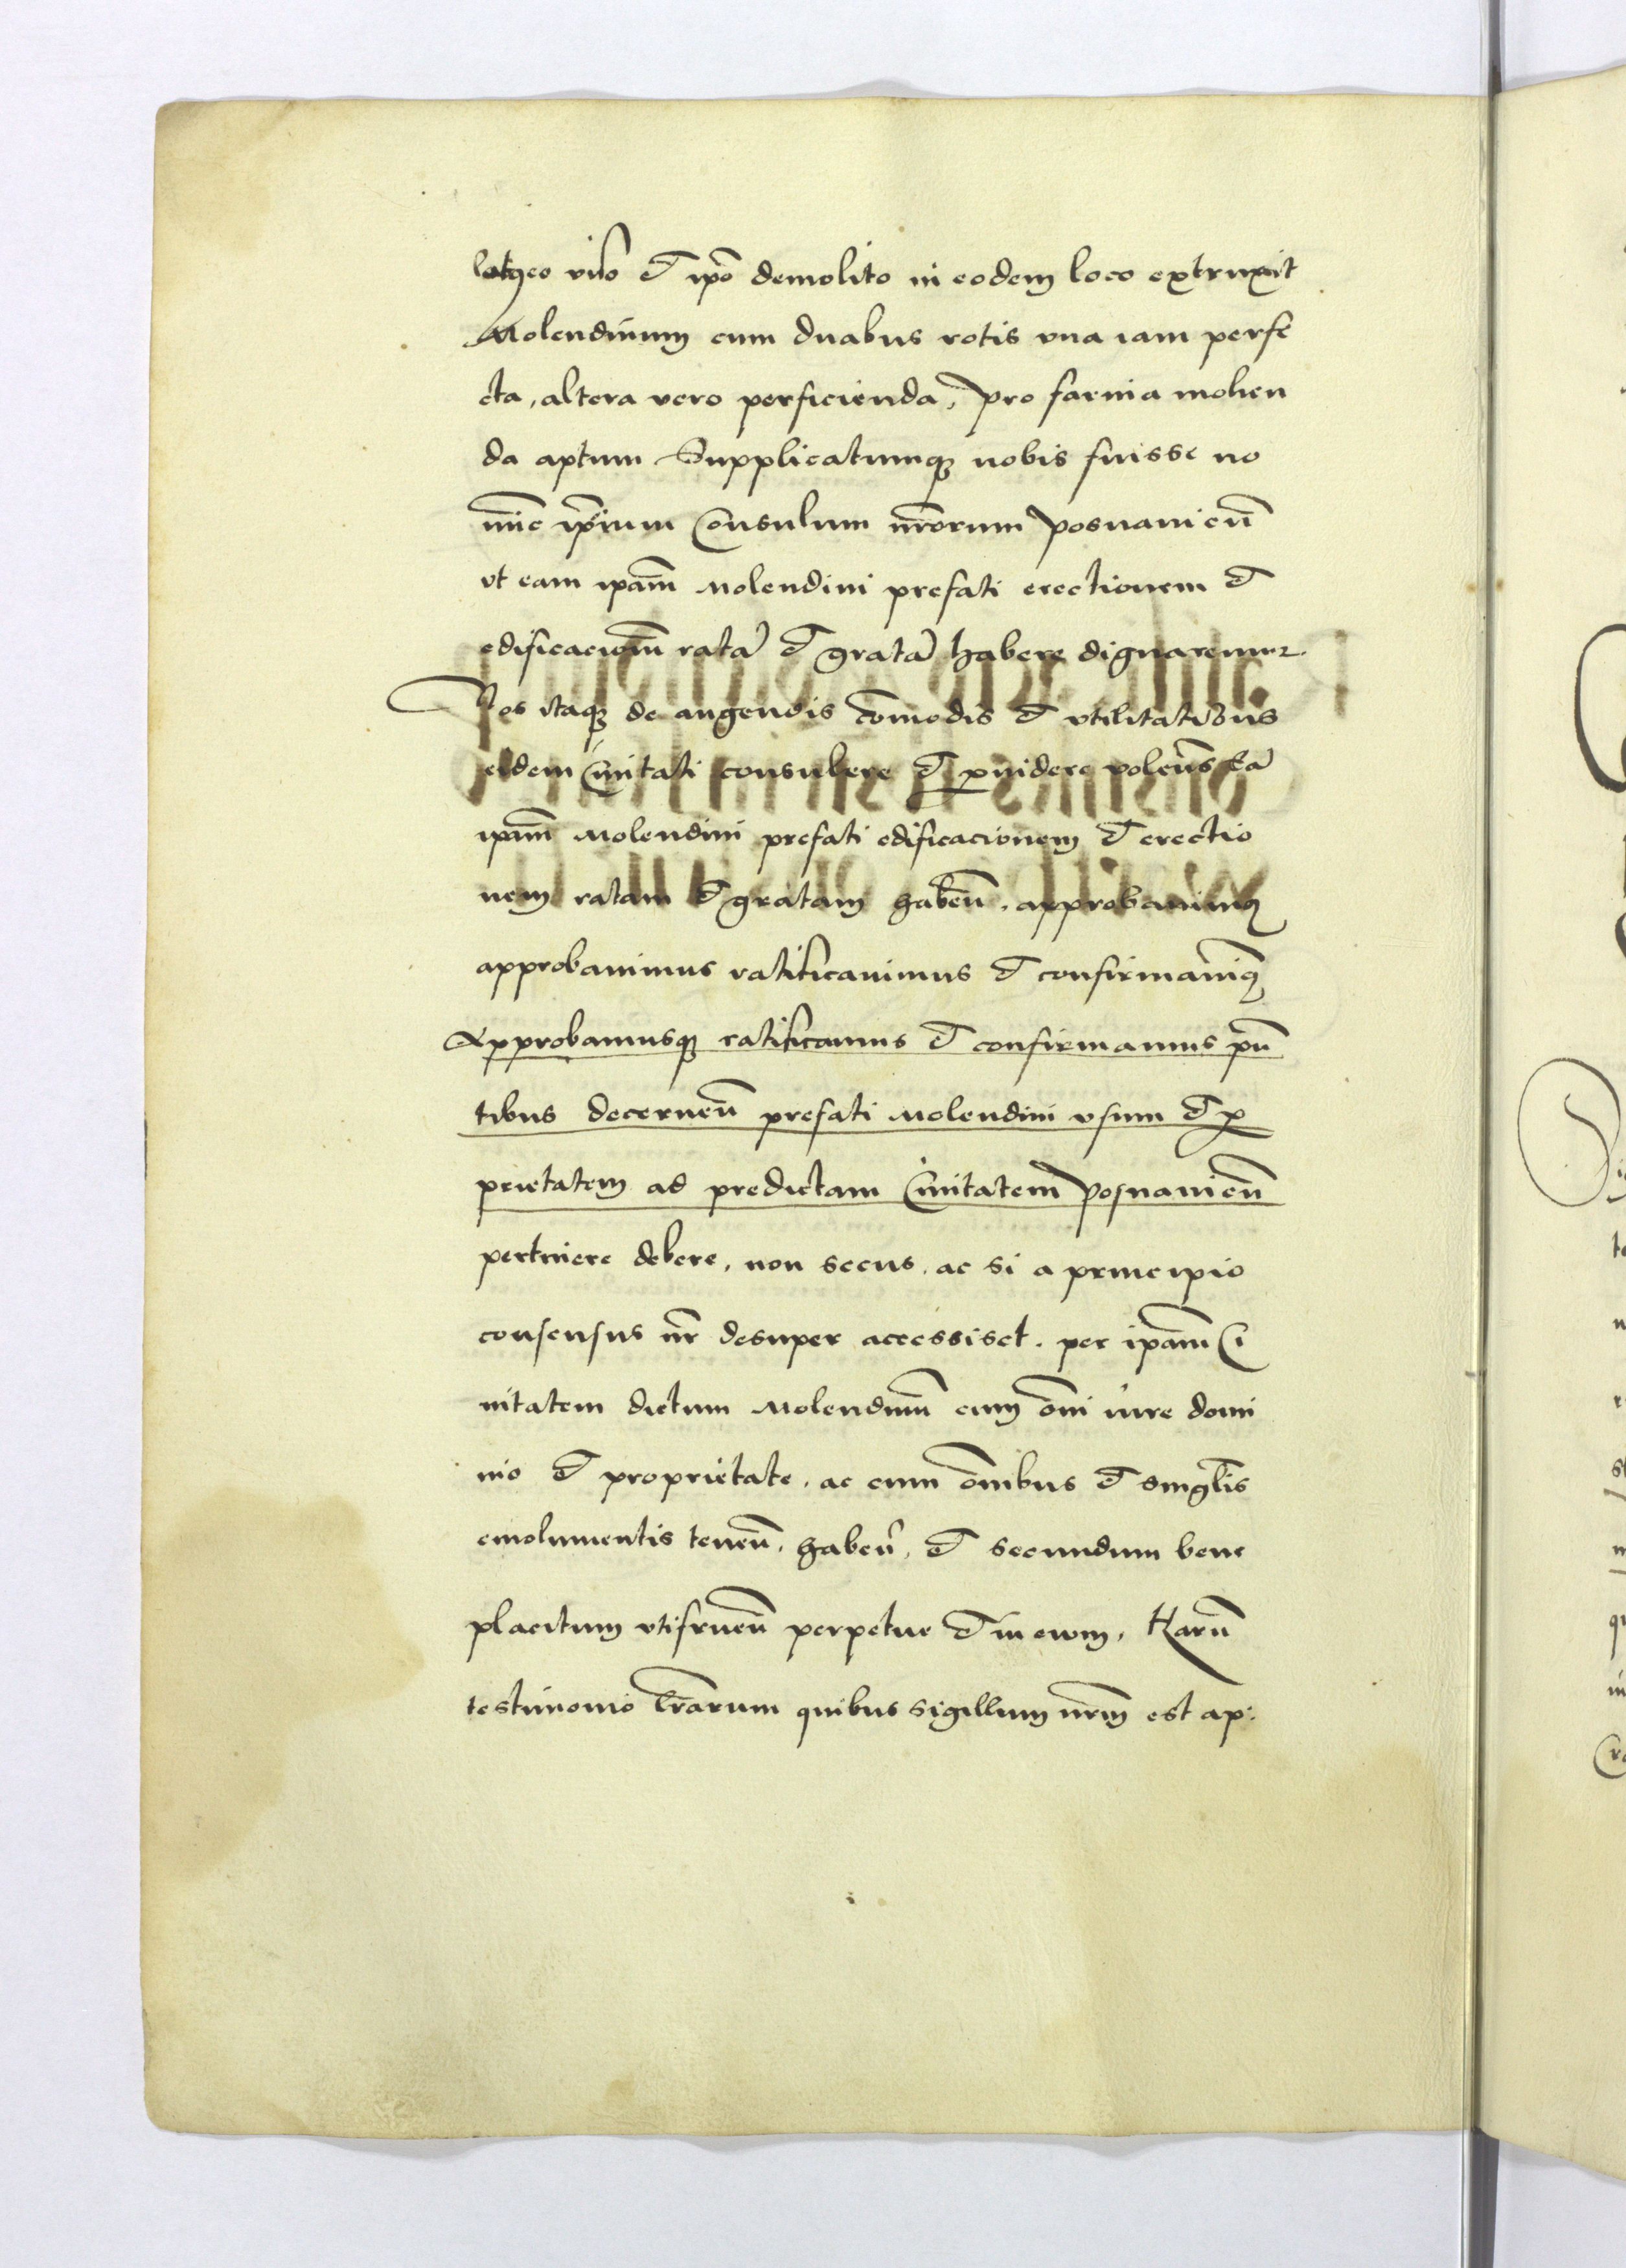 et ipo demolito in eodem loco extruxit
Molendinum cum duabus rotis vna iam perfe
cta, altera vero perficienda, pro farina molien
da aptum Supplicatumq3 nobis fuisse no
mine Consulum nrorum Posnanien̄
vt eam ipam̄ Molendini prefati erectionem et
edificaciom̄ ratā et gratā habere dignaremur.
Nos itaq3 de augendis com̄odis et vtilitatibus
eidem Ciuitati consulere et ꝓuidere volen̄s eā
ipam̄ Molendini prefati edificacionem et erectio
nem ratam et gratam haben̄. approbauimꝰ
approbauimus ratificauimus et confirmauimꝰ
Approbamusq3 ratificamus et confirmamus pn̄
tibus decernen̄ prefati Molendini vsum et ꝓ
prietatem ad predictam Ciuitatem Posnanien̄
pertinere debere, non secus, ac si a principio
consensus nr̄ desuper accessisset. per ipam̄ Ci
uitatem dictum Molendinum̄ cum om̄i iure domi
nio et proprietate, ac cum om̄ibus et singl̄is
emolumentis tenen̄. haben̄. et secundum bene
placitum vtifruen̄ perpetue et in ewm. Harū
testimonio lr̄arum quibus sigillum nrm̄ est ap: